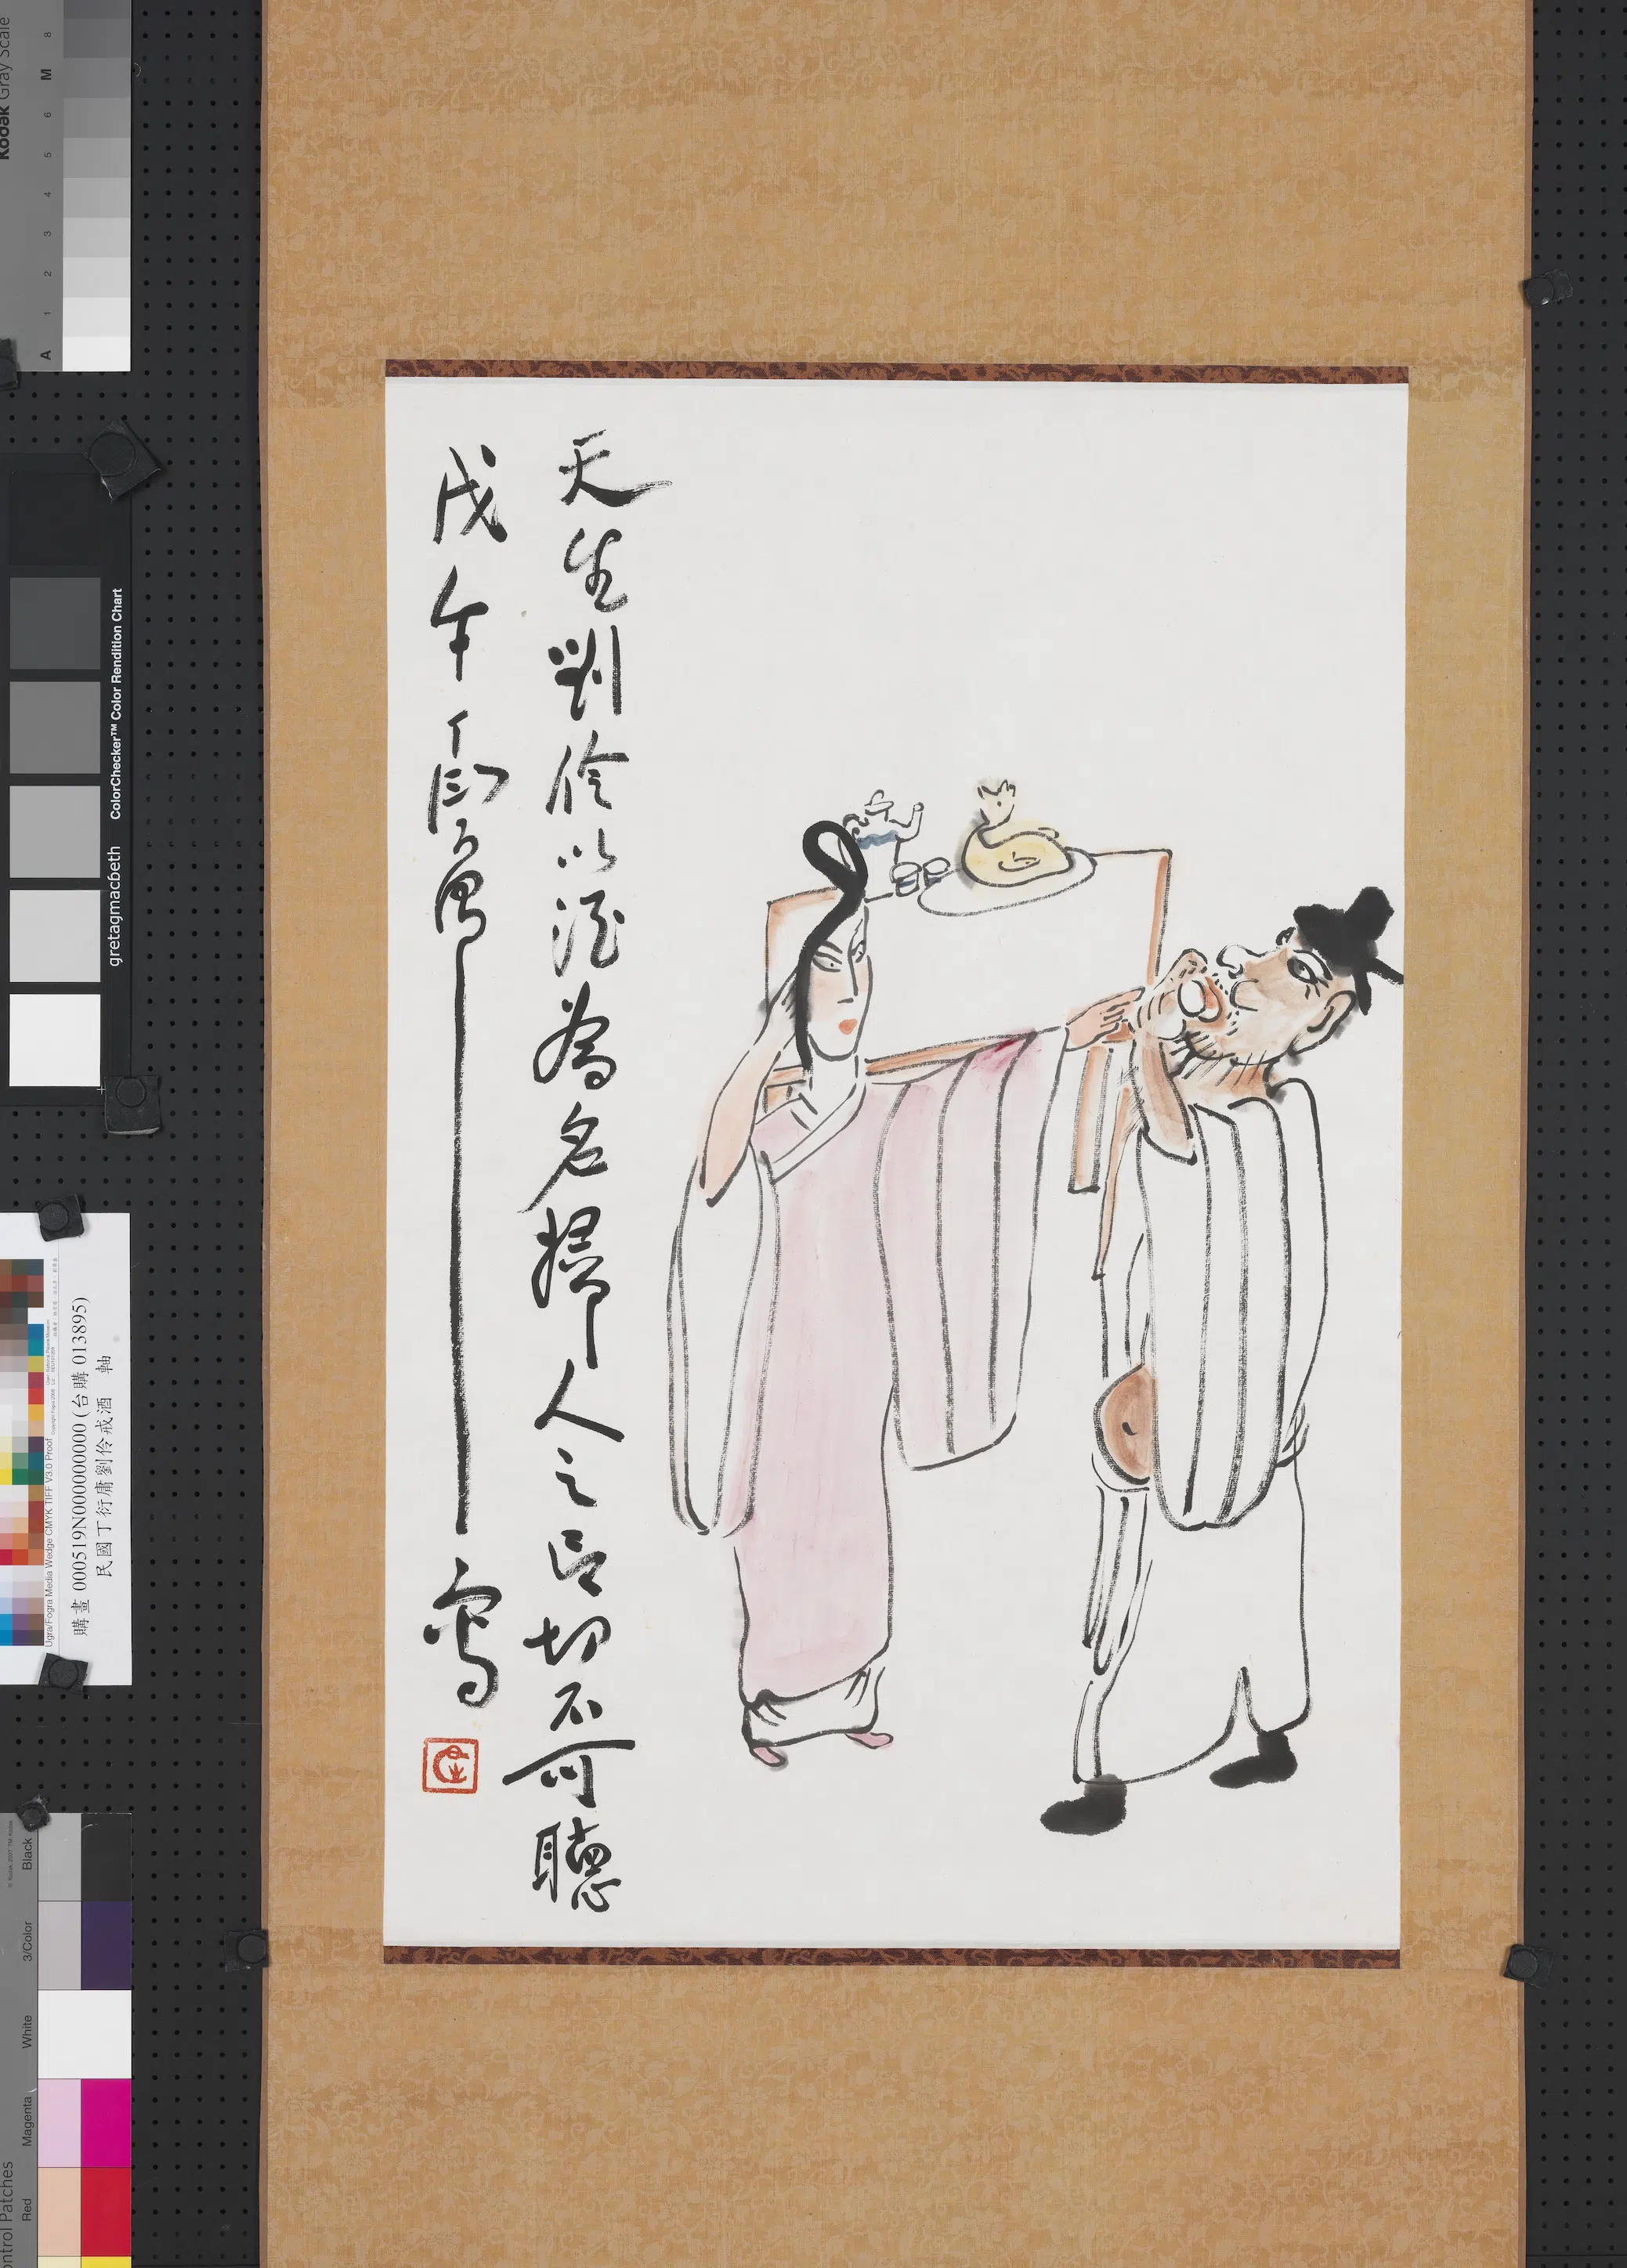 天生劉伶以酒為名婦人之言切不可聽
戊午丁衍庸寫
Kodak Gray Scale
A 1 2 3 4 5 6 M 8
gretagmacbeth ColorChecker™ Color Rendition Chart
購畫 000519N000000000 (台購 013895)
民國丁衍庸劉伶戒酒 軸
Ugra/Fogra Media Wedge CMYK TIFF V3.0 Proof
Red Magenta White 3/Color Black
ontrol Patches